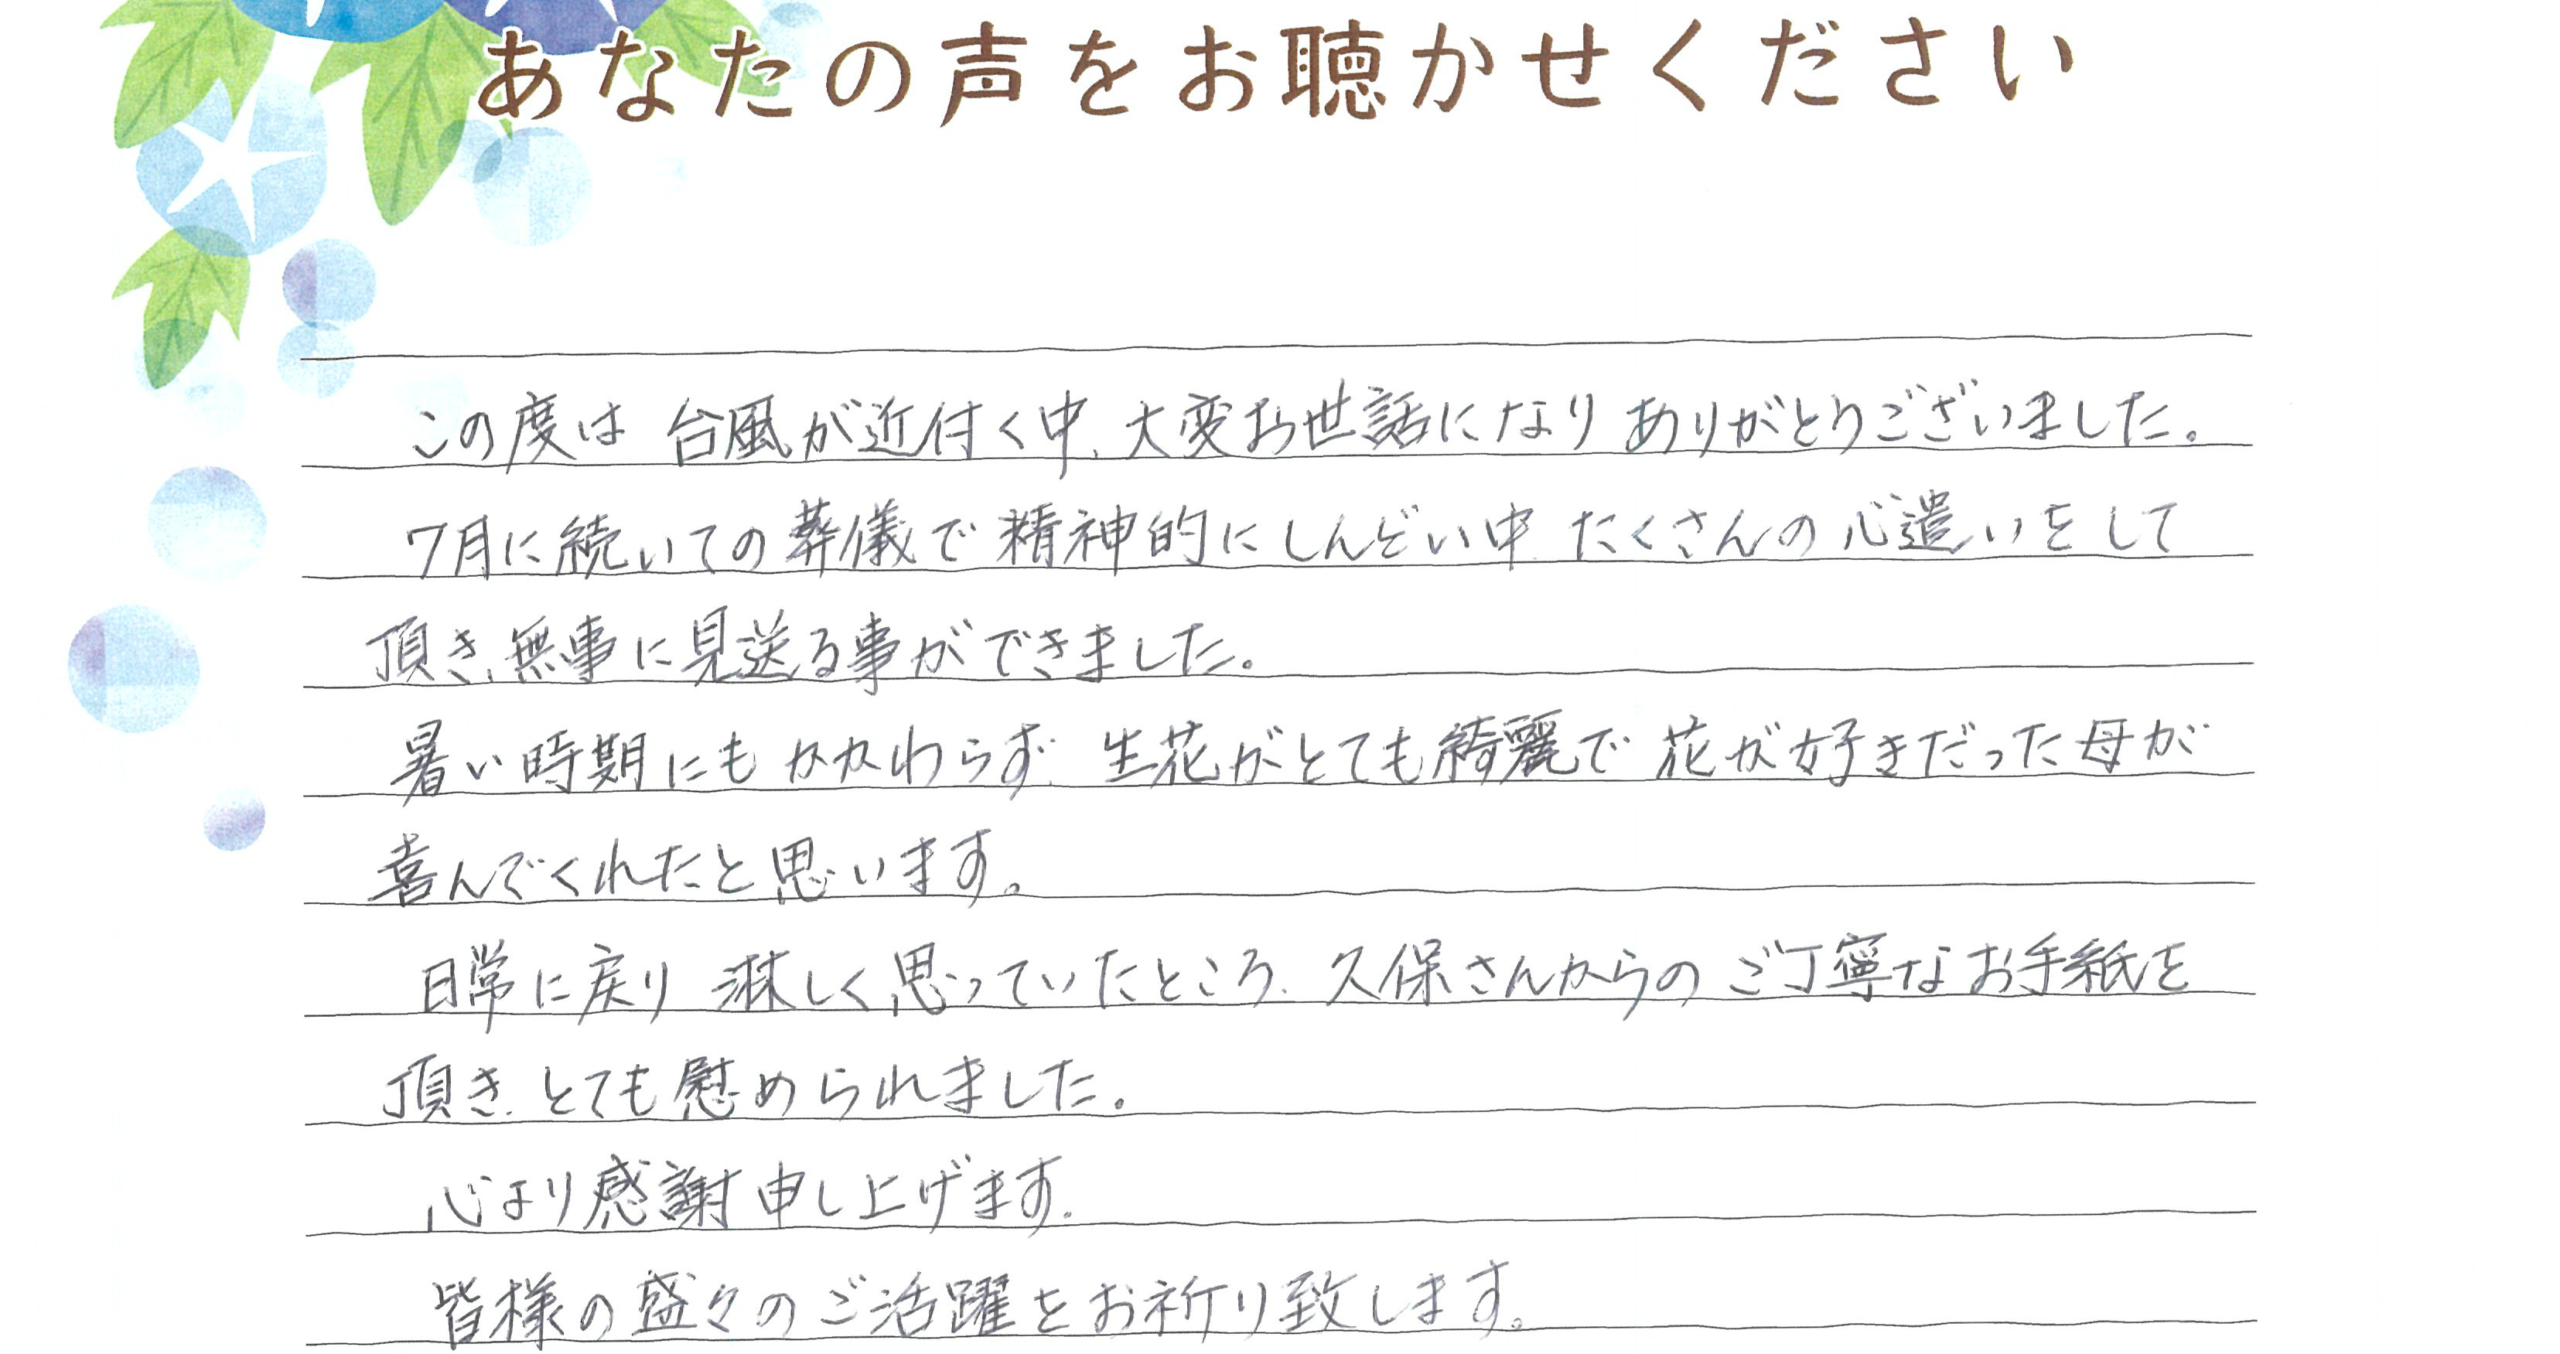 あなたの声をお聴かせください
この度は 台風が近付く中、大変お世話になり ありがとうございました。
7月に続いての葬儀で精神的にしんどい中、たくさんの心遣いをして
頂き、無事に見送る事ができました。
暑い時期にもかかわらず、生花がとても綺麗で 花が好きだった母が
喜んでくれたと思います。
日常に戻り 淋しく思っていたところ、久保さんからの ご丁寧なお手紙を
頂き、とても慰められました。
心より感謝申し上げます。
皆様の盛々のご活躍をお祈り致します。